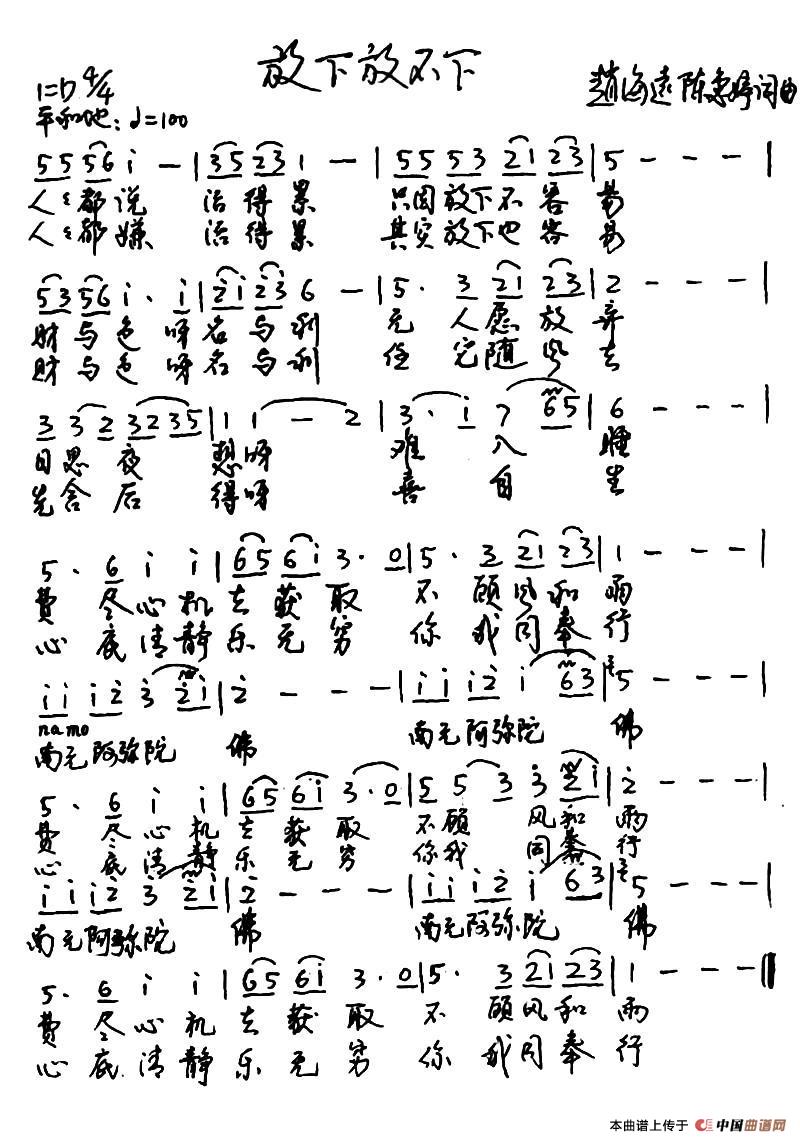 放下放不下
1=D 4/4
趙海遠 陈惠婷词曲
平和地：♩=100
5 5 5 6 i — | 3 5 2 3 1 — | 5 5 5 3 2 1 2 3 | 5 — — — |
人々都说 活得累 只因放下不容易
人々都嫌 活得累 其实放下也容易
5 3 5 6 i . i | 2 i 2 3 6 — | 5 . 3 2 1 2 3 | 2 — — — |
财与色呀名与利 无人愿放弃
财与色呀名与利 任它随风去
3 3 2 3 2 3 5 | 1 1 — 2 | 3 . i 7 6 5 | 6 — — —
日思夜想呀 难入睡
先舍后得呀 喜自生
5 . 6 i i | 6 5 6 i 3 . 0 | 5 . 3 2 1 2 3 | 1 — — — |
费尽心机去获取 不顾风和雨
心底清静乐无穷 你我同奉行
i i i 2 3 2 i | 2 — — — | i i i 2 i 6 3 | 5 — — — |
namo
南无阿弥陀 佛 南无阿弥陀 佛
5 . 6 i i | 6 5 6 i 3 . 0 | 5 5 3 3 2 i | 2 — — — |
费尽心机去获取 不顾风和雨
心底清静乐无穷 你我同奉行
i i i 2 3 2 i | 2 — — — | i i i 2 i 6 3 | 5 — — — |
南无阿弥陀 佛 南无阿弥陀 佛
5 . 6 i i | 6 5 6 i 3 . 0 | 5 . 3 2 1 2 3 | 1 — — — ‖
费尽心机去获取 不顾风和雨
心底清静乐无穷 你我同奉行
本曲谱上传于 中国曲谱网